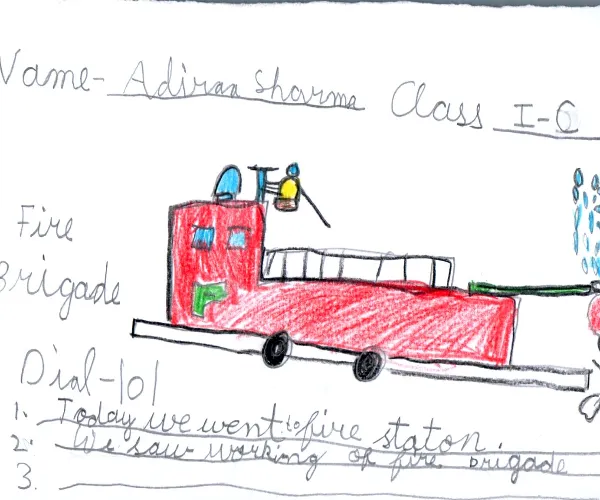 Name- Adiraa Sharma Class I-C
Fire
Brigade
Dial-101
1. Today we went to fire staton.
2. We saw working of fire brigade
3.